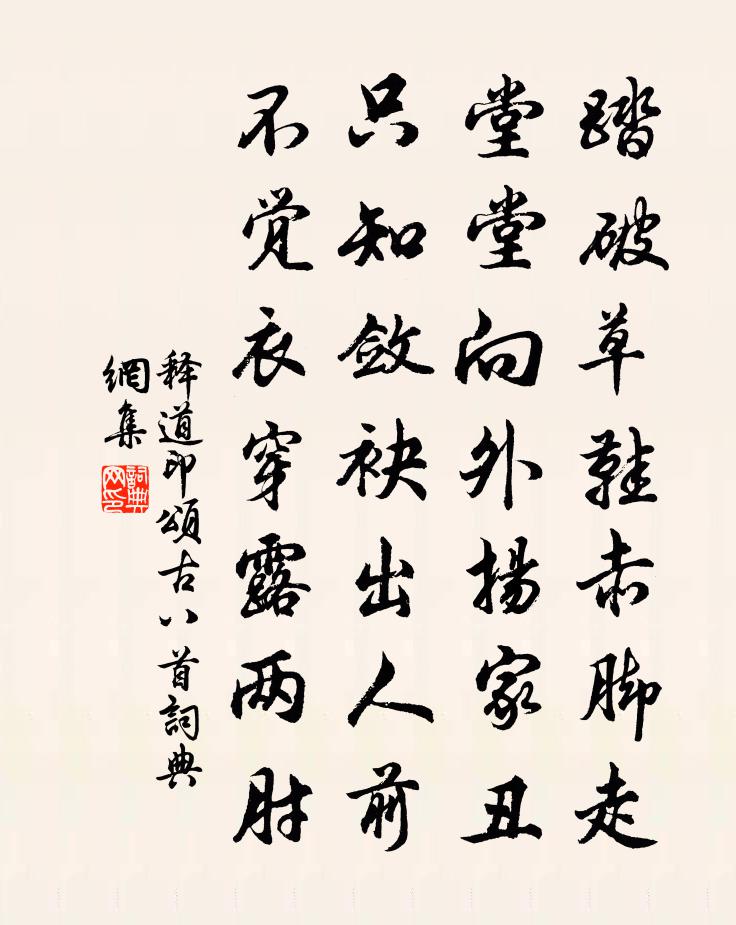 踏破草鞋赤脚走
堂堂向外揚家丑
只知斂袂出人前
不觉衣穿露两肘
释道印頌古八首詞典
網集
詞典
网